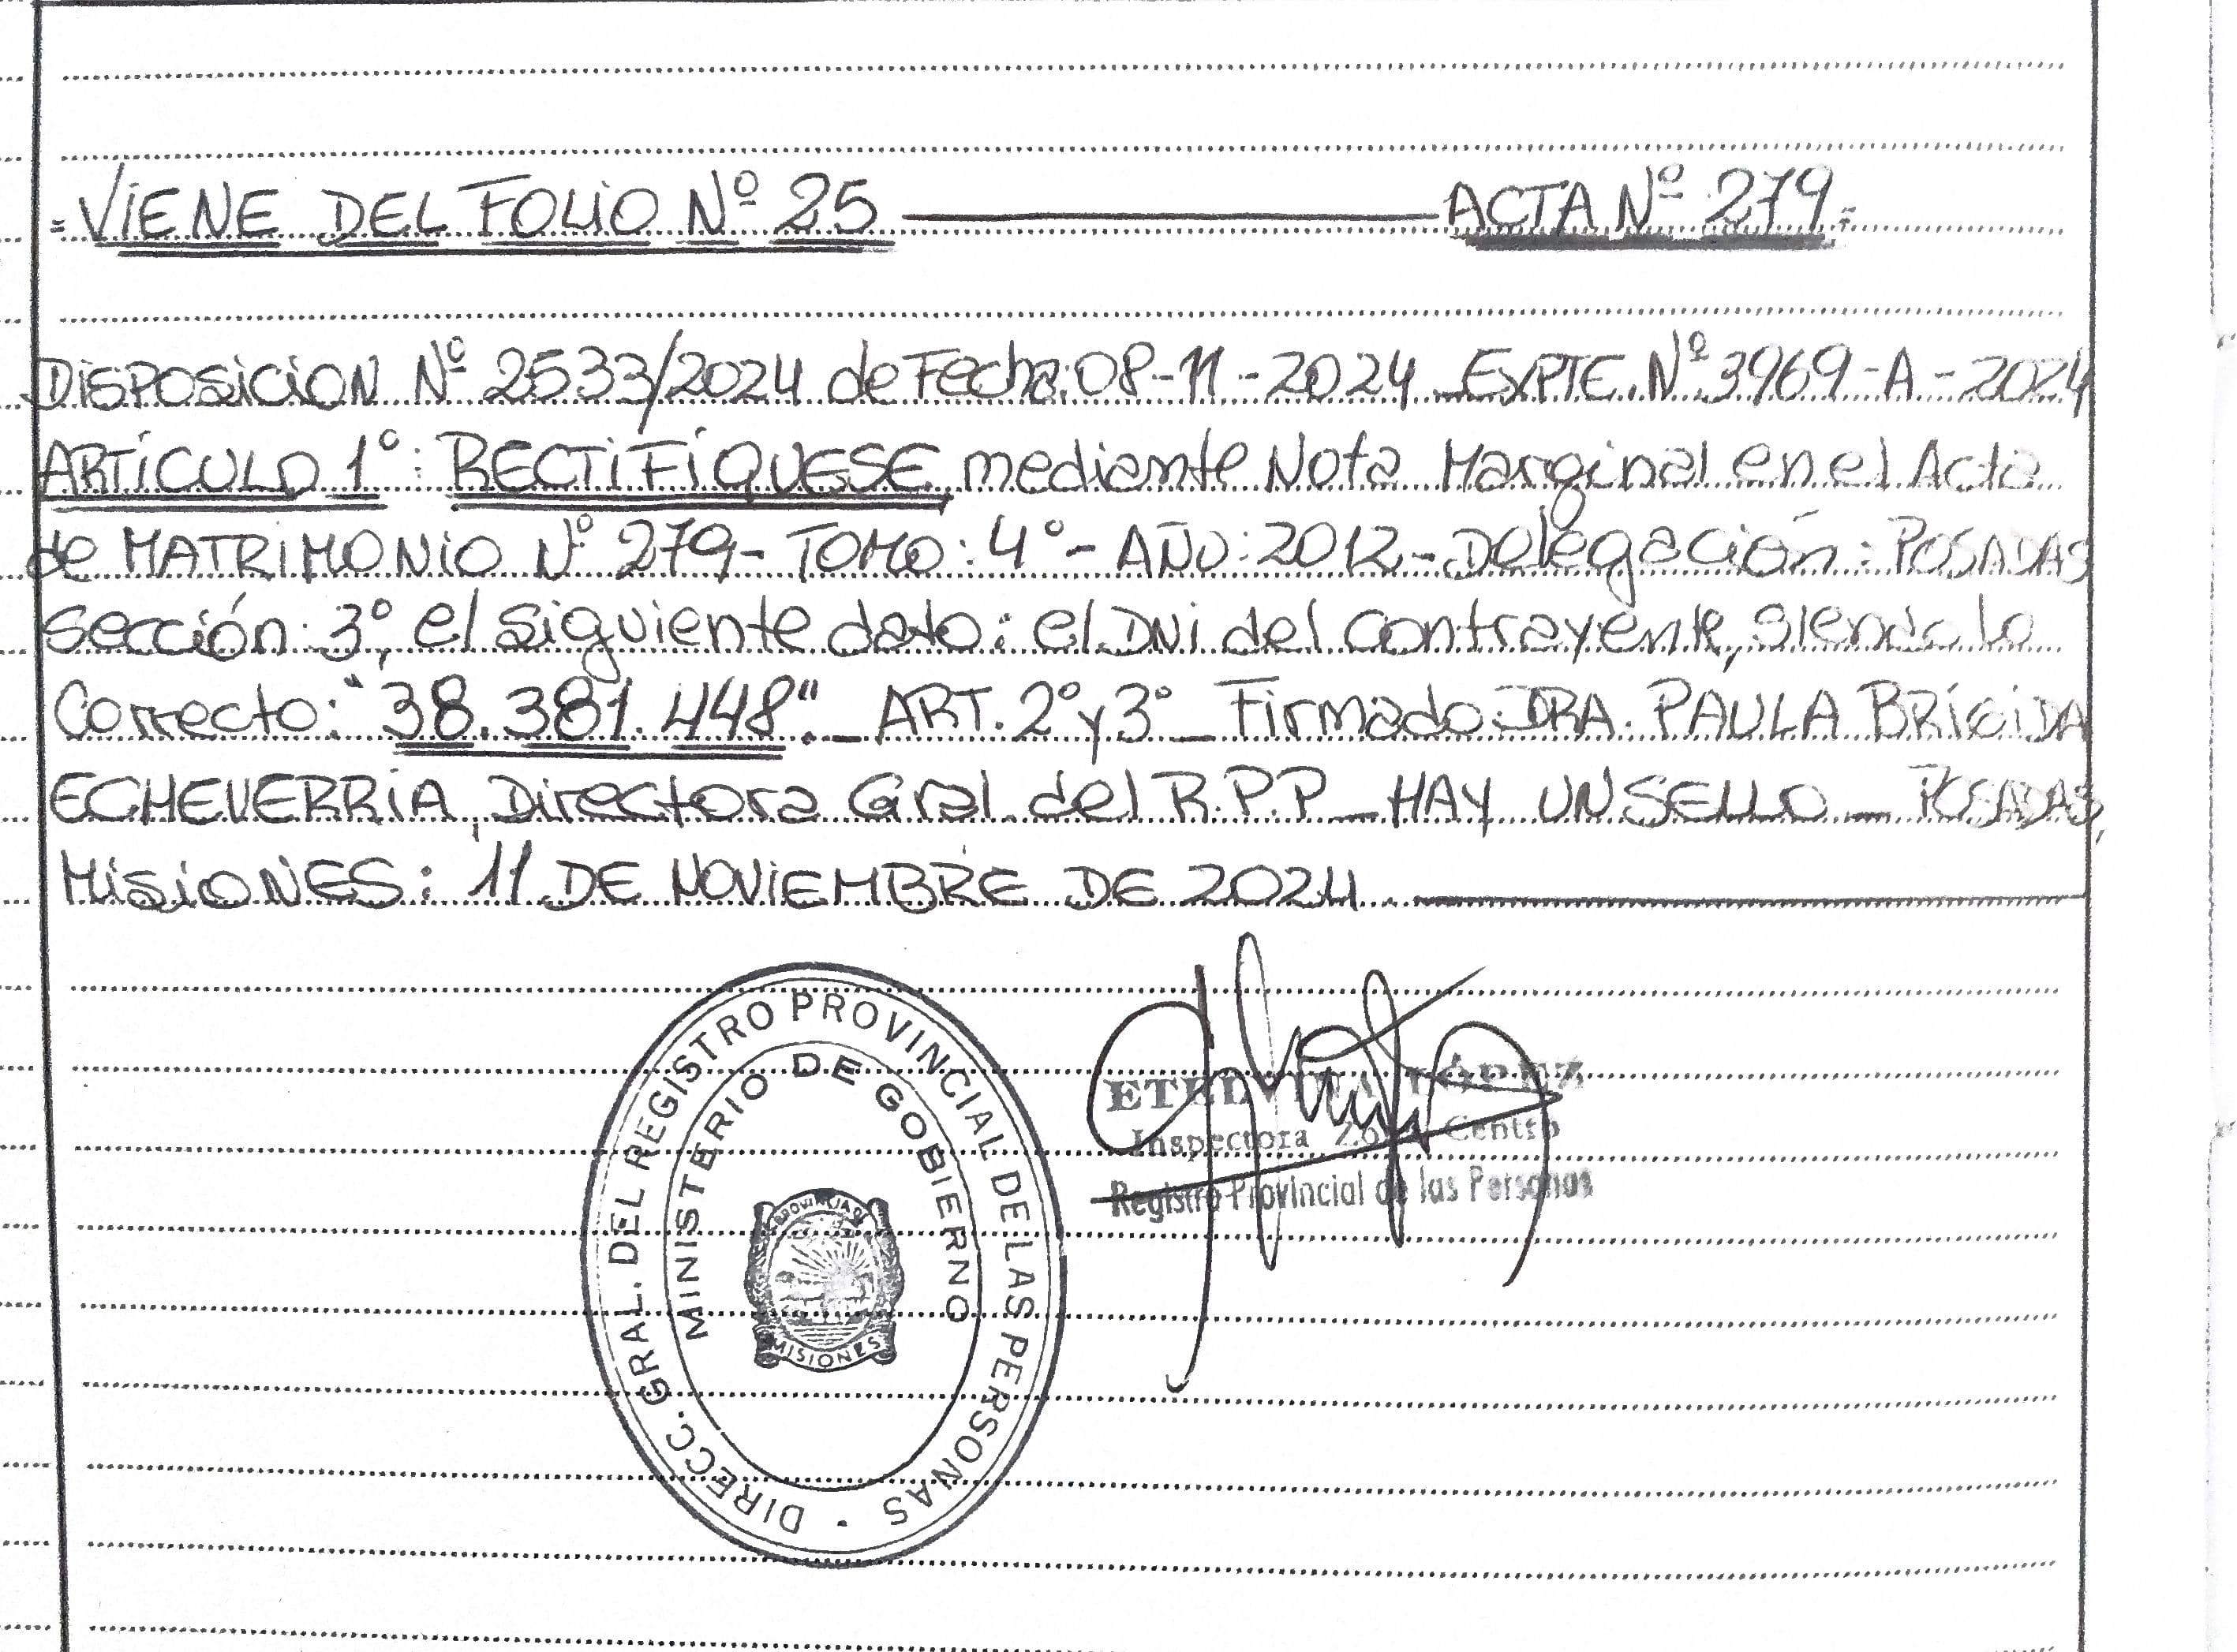 =VIENE DEL FOLIO Nº 25 ACTA Nº 279=
DISPOSICION Nº 2533/2024 de Fecha: 08-11-2024 EXPTE. Nº 3969-A-2024
ARTÍCULO 1º: RECTIFÍQUESE mediante Nota Marginal en el Acta
de MATRIMONIO Nº 279- TOMO: 4º- AÑO: 2012- Delegación: POSADAS
Sección: 3º, el siguiente dato: el DNI del contrayente, siendo lo
Correcto: "38.381.448". ART. 2º y 3º Firmado: DRA. PAULA BRÍGIDA
ECHEVERRÍA, Directora Gral. del R.P.P_HAY UN SELLO _ POSADAS,
MISIONES: 11 DE NOVIEMBRE DE 2024.
DIRECC. GRAL. DEL REGISTRO PROVINCIAL DE LAS PERSONAS
MINISTERIO DE GOBIERNO
PROVINCIA DE
MISIONES
ETELVINA LÓPEZ
Inspectora Zona Centro
Registro Provincial de las Personas